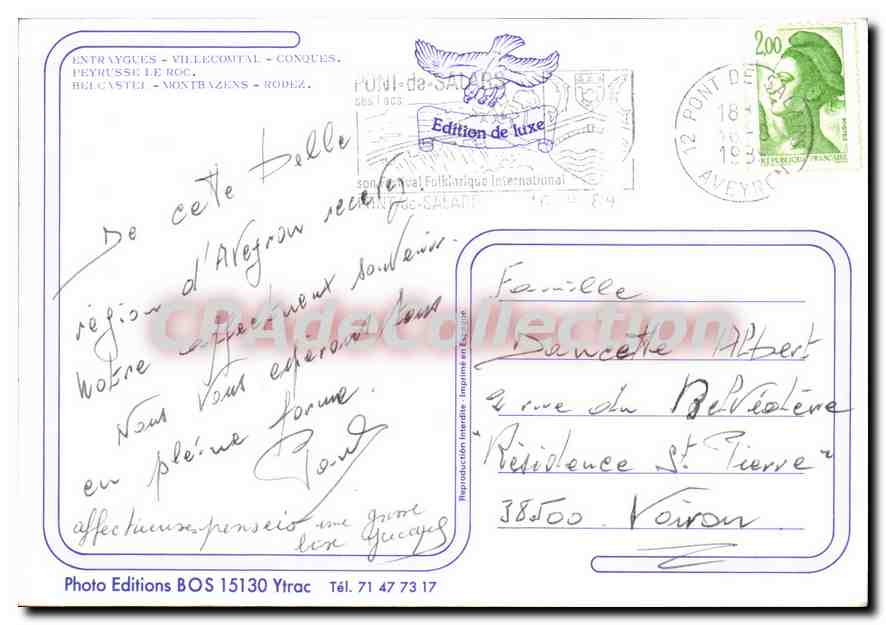 ENTRAYGUES - VILLECOMTAL - CONQUES.
PEYRUSSE LE ROC.
BELCASTEL - MONTBAZENS - RODEZ.
PONT-de-SALARS
ses lacs
Edition de luxe
son Festival Folklorique International
PONT-de-SALARS
12 PONT DE SALARS
18
AVEYRON
2,00
REPUBLIQUE FRANCAISE
De cette belle
région d'Aveyron recevez
notre affectueux souvenir.
Nous vous espérons tous
en pleine forme.
affectueuses pensées une grosse
bise
Reproduction Interdite - Imprimé en Espagne
Famille
Dancette Albert
rue du Belvédère
"Résidence St Pierre"
38500 Voiron
CPAdeCollection
Photo Editions BOS 15130 Ytrac Tél. 71 47 73 17